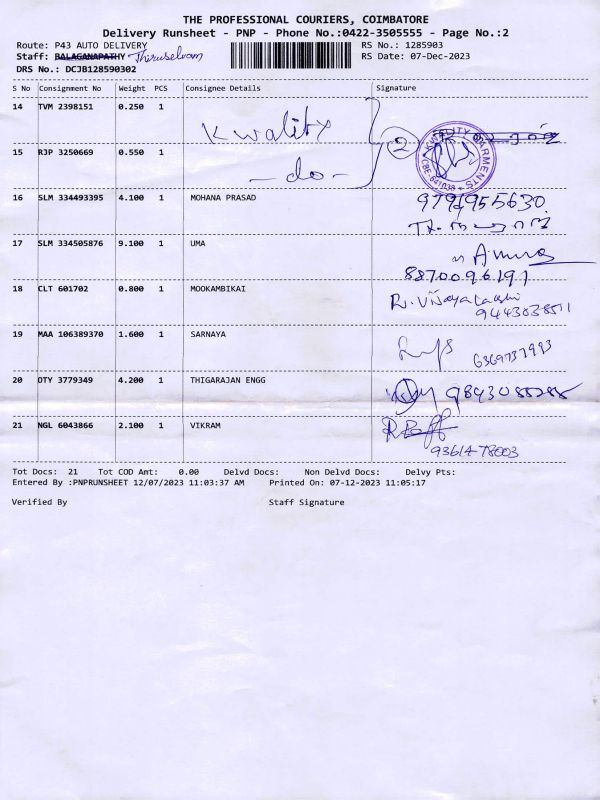 THE PROFESSIONAL COURIERS, COIMBATORE
Delivery Runsheet - PNP - Phone No.:0422-3505555 - Page No.:2
Route: P43 AUTO DELIVERY RS No.: 1285903
Staff: BALAGANAPATHY Thiruselvam RS Date: 07-Dec-2023
DRS No.: DCJB128590302
S No Consignment No Weight PCS Consignee Details Signature
14 TVM 2398151 0.250 1 Kwality
2 KWALITY GARMENTS CBE-641038
15 RJP 3250669 0.550 1 -do-
16 SLM 334493395 4.100 1 MOHANA PRASAD
17 SLM 334505876 9.100 1 UMA
8870096191
18 CLT 601702 0.800 1 MOOKAMBIKAI R. Vijayalakshi
19 MAA 106389370 1.600 1 SARNAYA 6369737993
20 DTY 3779349 4.200 1 THIGARAJAN ENGG
21 NGL 6043866 2.100 1 VIKRAM
9361478003
Tot Docs: 21 Tot COD Amt: 0.00 Delvd Docs: Non Delvd Docs: Delvy Pts:
Entered By :PNPRUNSHEET 12/07/2023 11:03:37 AM Printed On: 07-12-2023 11:05:17
Verified By Staff Signature